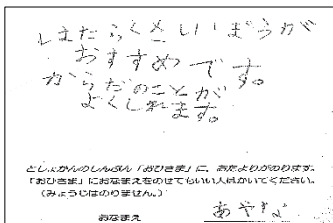 はたらくさいぼうが
おすすめです。
からだのことが
よくしれます。
としょかんのしんぶん「おひさま」に、おたよりがのります。
「おひさま」におなまえをのせてもいい人はかいてください。
(みょうじはのりません。)
おなまえ あやすけ